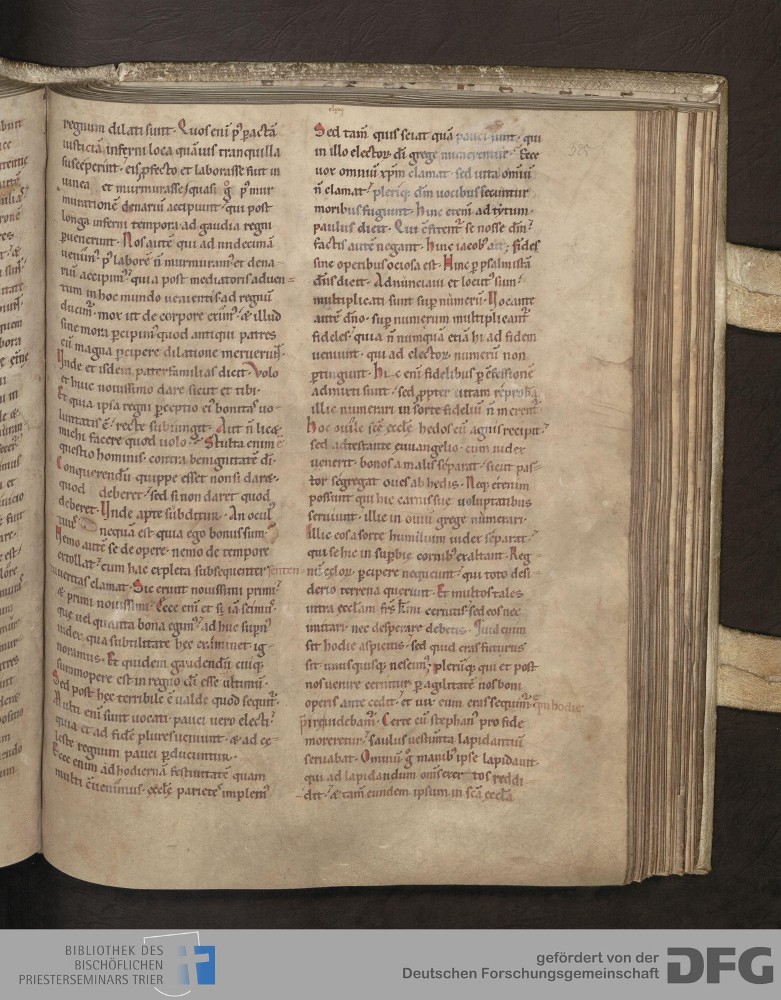 regnum dilati sunt. Quos eni p9 pactā
iusticiā inferni loca quāuis tranquilla
susceperunt. eis pfecto et laborasse fuit in
uinea et murmurasse. quasi g° p9 mur
murationē denariū accipiunt. qui post
longa inferni tempora ad gaudia regni
puenerunt. Nos autē qui ad undecimā
uenim9 p9 laborē n̄ murmuram9 et dena
riū accipim9. quia post mediatoris aduen=
tum in hoc mundo uenientes ad regnū
ducim9. mox ut de corpore exim9. & illud
sine mora pcipim9 quod antiqui patres
cū magna pcipere dilatione meruerunt.
Unde et isdem paterfamilias dicit. Volo
et huic nouissimo dare sicut et tibi.
Et quia ipsa regni pceptio ei9 bonitas uo
luntatis ē. recte subiungit. Aut n̄ licet
michi facere quod uolo. Stulta enim ē
questio hominis. contra benignitatē di.
Conquerendū quippe esset non si dare.
quod deberet. sed si non daret quod
deberet. Unde apte subditur. An ocul9
tuus nequā est quia ego bonus sum.
Nemo autē se de opere. nemo de tempore
extollat. cum hac expleta subsequenter senten
ueritas clamat. Sic erunt nouissimi primi.
& primi nouissimi. Ecce eni et si iā scim9.
que uel quanta bona egim9. ad huc supn9
iudex qua subtilitate hec examinet ig
noramus. Et quidem gaudendū cuiq;
summopere est in regno di esse ultimū.
Sed post hec terribile ē ualde quod sequit.
Multi eni sunt uocati. pauci uero electi.
quia et ad fidē plures ueniunt. & ad ce=
leste regnum pauci pducuntur.
Ecce enim ad hodiernā festiuitatē quam
multi cuenimus. eccle parietes implem9
Sed tam quis sciat quā pauci sunt. qui
in illo electoꝝ di grege numerentur. Ecce
uox omniū xpm clamat. sed uita omniū
n̄ clamat. pleriq; dm uocibus secuntur
moribus fugiunt. Hinc etenī ad tytum.
paulus dicit. Qui cfitent se nosse dm.
factis autē negant. Hinc iacob9 ait. fides
sine operibus ociosa est. Hinc p psalmistā
dns dicit. Adnunciaui et locut9 sum.
multiplicati sunt sup numerū. Uocante
autē dno. sup numerum multiplicant
fideles. quia n̄ numquā etiā hi ad fidem
ueniunt. qui ad electoꝝ numerū non
ptingunt. Hic eni fidelibus p cfessionē
admixti sunt. sed ppter uitam reprobā
illic numerari in sorte fideliū n̄ merent.
Hoc ouile scē eccle hedos cū agnis recipit.
sed adtestante euuangelio. cum iudex
uenerit. bonos a malis separat. sicut pas=
tor segregat oues ab hedis. Neq; etenim
possunt qui hic carnis sue uoluptatibus
seruiunt. illic in ouiū grege numerari.
Illic eos a sorte humilum iudex separat.
qui se hic in supbie cornib9 exaltant. Reg=
nū celoꝝ pcipere nequeunt. qui toto desi=
derio terrena querunt. Et multos tales
intra eccłam frs kmi cernitis. sed eos nec
imitari. nec desperare debetis. Quid enim
sit hodie aspicitis. sed quid cras futurus
sit unusquisq; nescim9. plerūq; qui et post
nos uenire cernitur. p agilitatē nos boni
operis ante cedit. et uix eum cras sequim9. quē hodie
preire uidebam9. Certe cū stephan9 pro fide
moreretur. saulus uestimta lapidantiū
seruabat. Omniū g° manib9 ipse lapidauit.
qui ad lapidandum oms exertos reddi=
dit. & tam eundem ipsum in scā ecclā
BIBLIOTHEK DES
BISCHÖFLICHEN
PRIESTERSEMINARS TRIER
gefördert von der
Deutschen Forschungsgemeinschaft
DFG